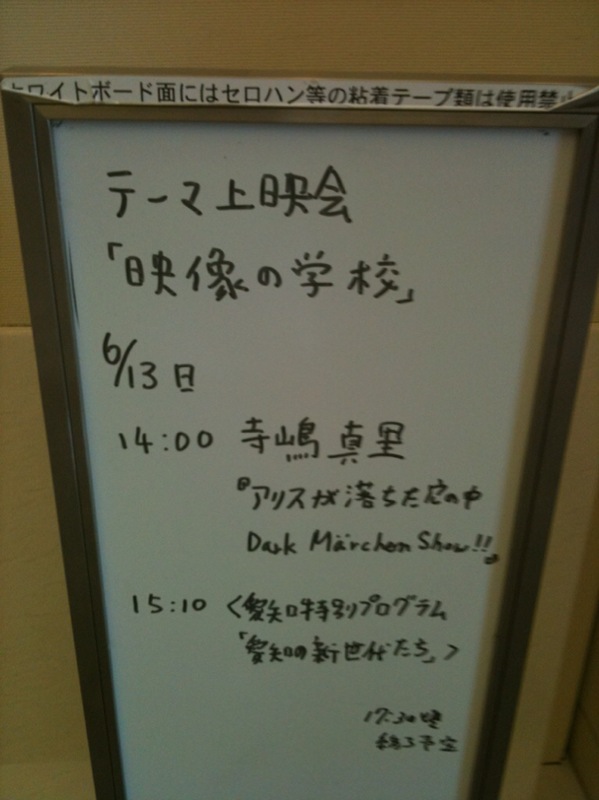 ホワイトボード面にはセロハン等の粘着テープ類は使用禁止
テーマ上映会
「映像の学校」
6/13日
14:00 寺嶋真里
『アリスが落ちた穴の中
Dark Märchen Show!!』
15:10 〈愛知特別プログラム
「愛知の新世代たち」〉
17:30頃
終了予定